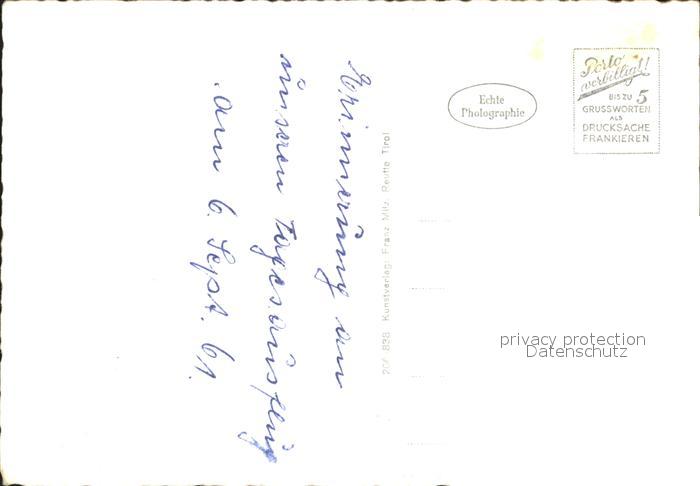 Erinnerung an
unseren Tagesausflug
am 6. Sept. 61.
838 Kunstverlag: Franz Milz, Reutte Tirol
Echte
Photographie
Porto
verbilligt!
BIS ZU 5
GRUSSWORTEN
ALS
DRUCKSACHE
FRANKIEREN
privacy protection
Datenschutz